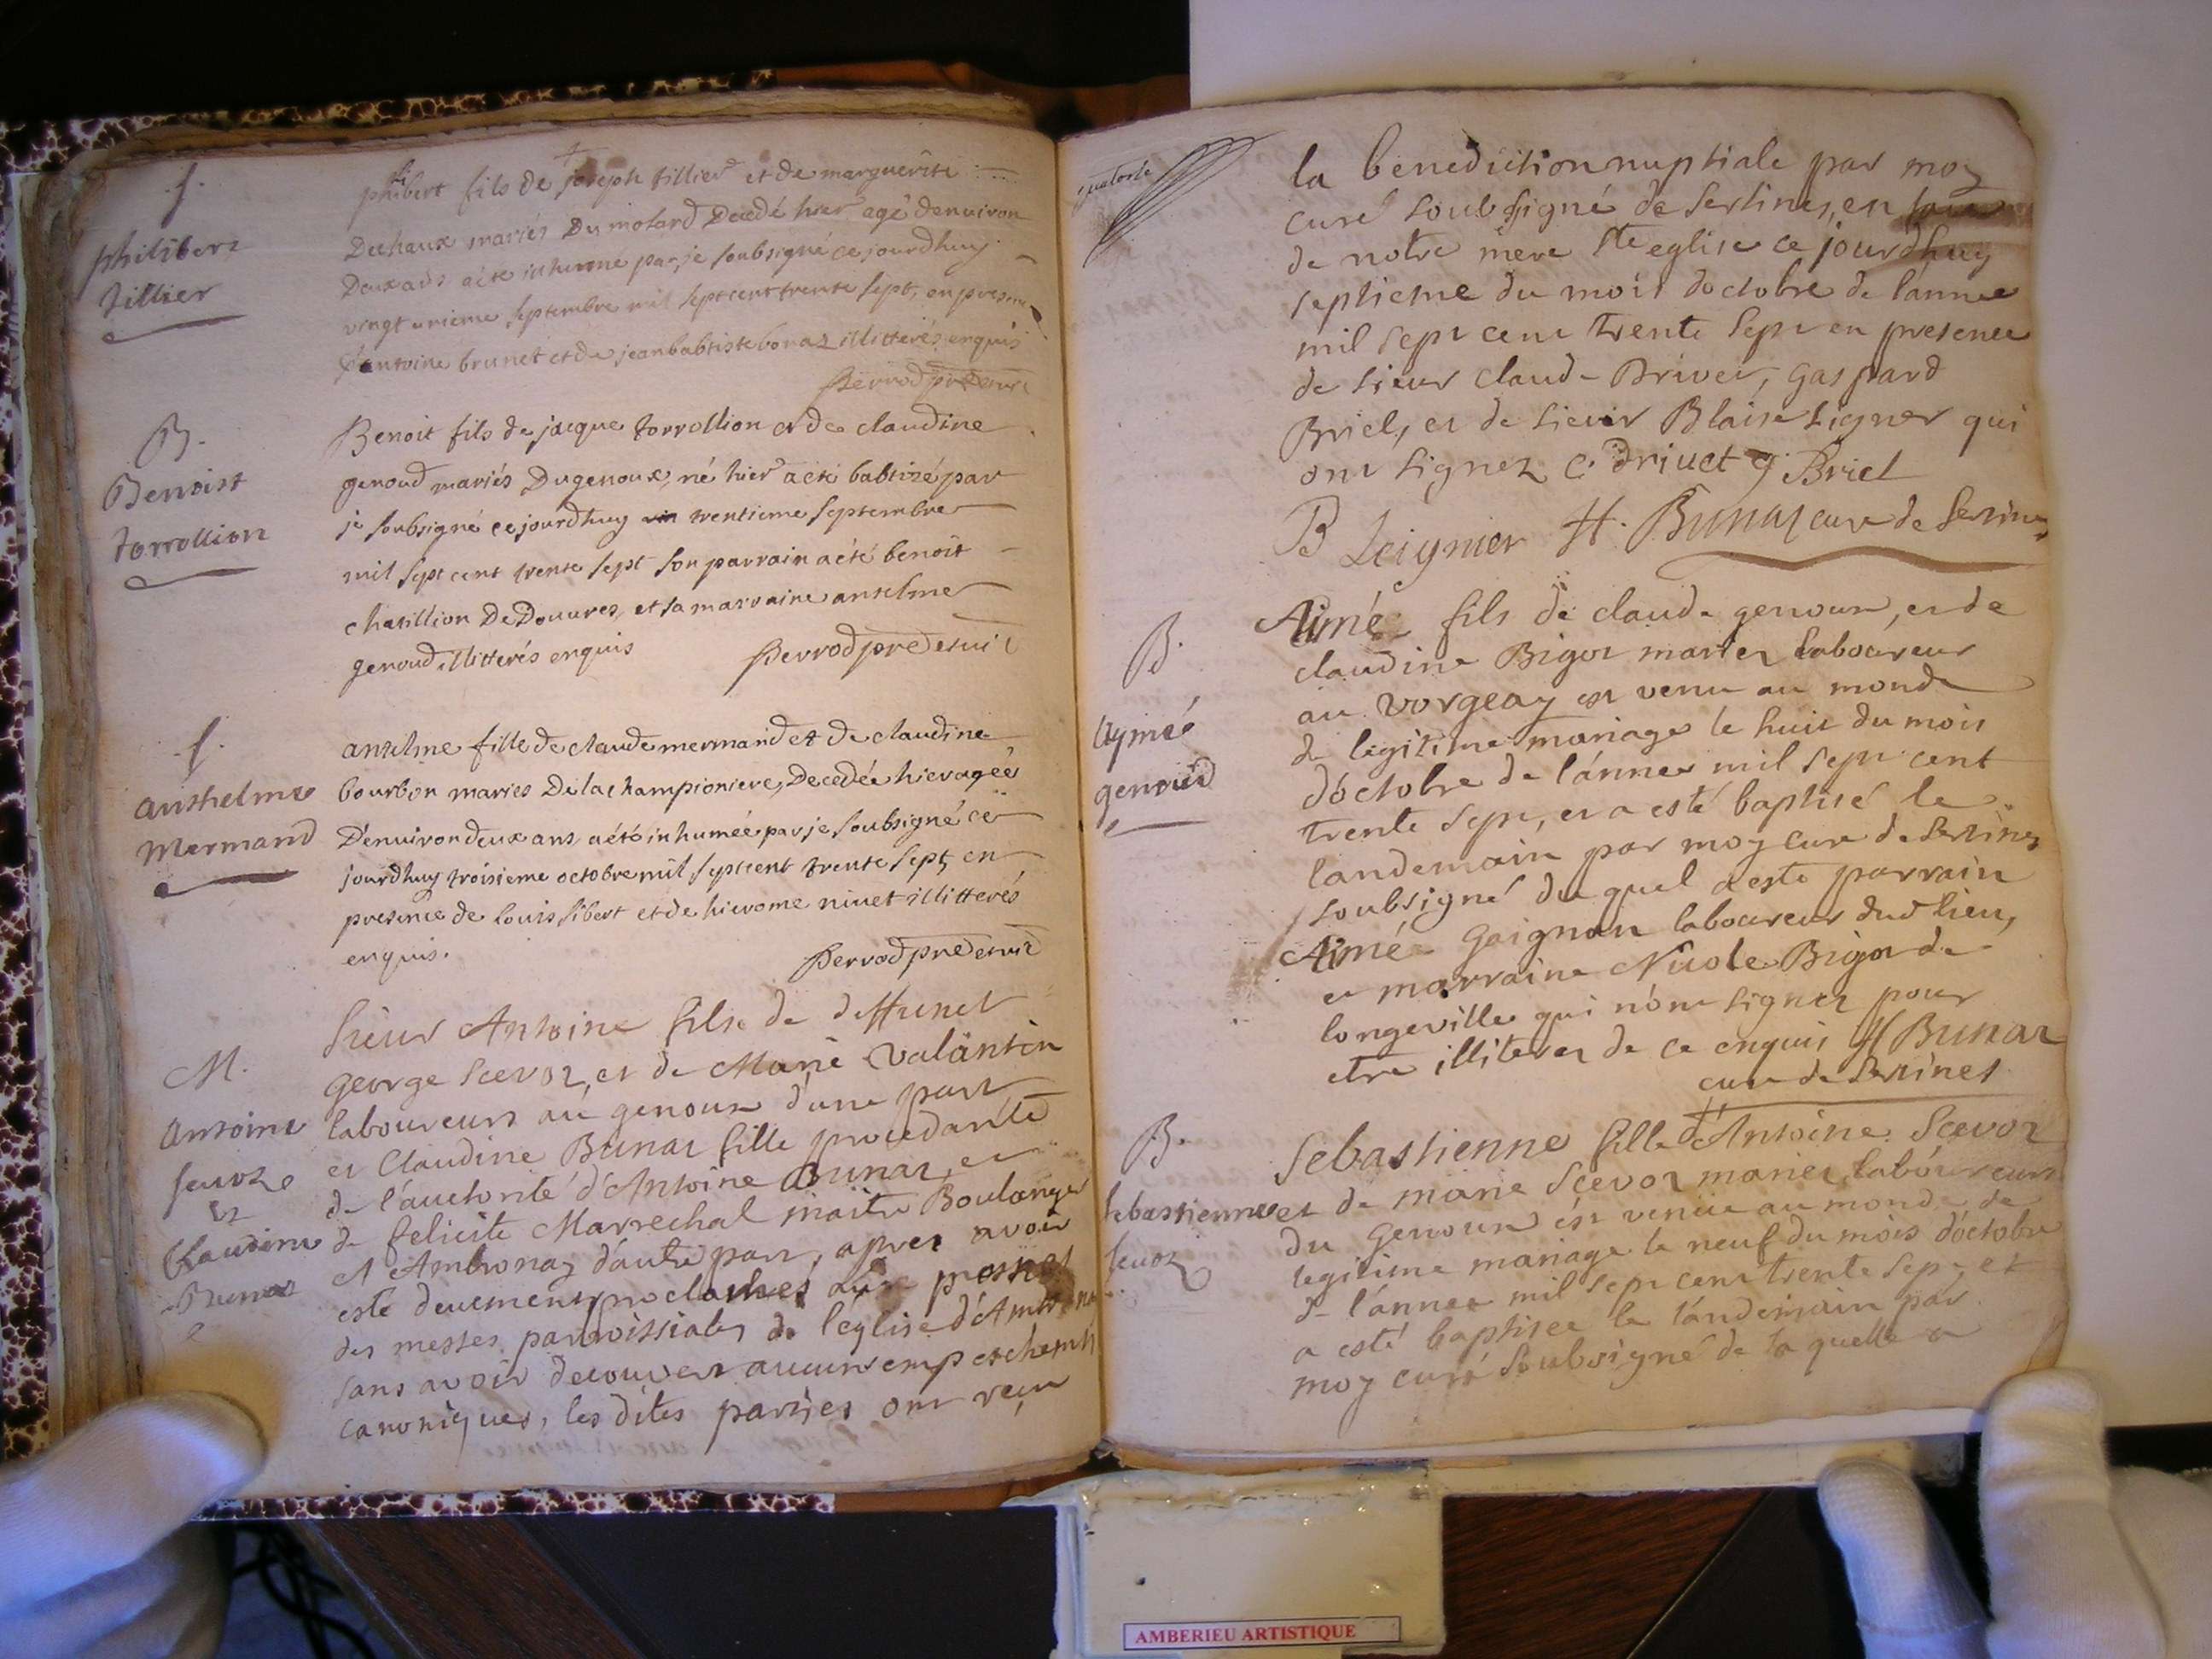 f.
philibert
tillier
philibert fils de joseph tillier et de marguerite
Dechaux mariés Du molard Decedé hier agé denuiron
Deux ans a été inhumé par je soubsigné ce jourdhuy
vingt unieme septembre mil sept cent trente sept, en presence
d'antoine brunet et de jean babtiste bonaz illitterés enquis
Perrod
B.
Benoist
torrollion
Benoit fils de jacque torrollion et de claudine
genoud mariés Dugenoux, né hier a été babtizé par
je soubsigné ce jourdhuy trentieme septembre
mil sept cent trente sept son parrain a été benoit
chatillion De Douures, et sa marraine anselme
genoud illitterés enquis Perrod
f.
anthelme
Mermand
anselme fille de claude mermand et de claudine
bourbon maries De la championiere, Decedée hier agée
D'enuiron deux ans a été inhumée par je soubsigné ce
jourdhuy troisieme octobre mil sept cent trente sept, en
presence de louis sibert et de hierome niuet illitterés
enquis. Perrod
M.
Antoine
sevoz
et
Claudine
Bunaz
sieur Antoine fils de deffunct
george scevoz, et de Marie Valantin
laboureurs au genoux d'une part
et Claudine Bunaz fille procedante
de l'auctorité d'Antoine Bunaz, et
de felicite Marrechal maitre Boulanger
a Ambronay d'autre part, apres avoir
esté deuement proclamés aux prosnes
des messes parroissiales de l'eglise d'Ambronay
sans avoir decouvert aucuns empeschements
canoniques, les dites parties ont reçu
quatorze
la benediction nuptiale par moy
curé soubsigné de sertines, en
de notre mere ste eglise ce jourdhuy
septieme du mois doctobre de l'année
mil sept cent trente sept en presence
de sieur claude Drivet, gaspard
Briel, et de sieur Blaise signer qui
ont signez C. Drivet g. Briel
B Leignier H. Bunaz cure de sertines
B.
Aymé
genoud
Aimé fils de claude genoux, et de
claudine Bigot mariez laboureur
au vorgeay est venu au monde
de legitime mariage le huit du mois
d'octobre de l'année mil sept cent
trente sept, et a esté baptisé le
landemain par moy cure de sertines
soubsigné du quel a esté parrain
Aimé Gaignon laboureur dud lieu,
et marraine Nicole Bigot de
longeville qui n'ont signez pour
etre illiterez de ce enquis H Bunaz
cure de sertines
B.
sebastienne
sevoz
Sebastienne fille d'Antoine Scevoz
et de marie Scevoz mariez laboureurs
du genoux est venüe au monde de
legitime mariage le neuf du mois d'octobre
de l'année mil sept cent trente sept, et
a esté baptisee le landemain par
moy curé soubsigné de la quelle a
AMBERIEU ARTISTIQUE